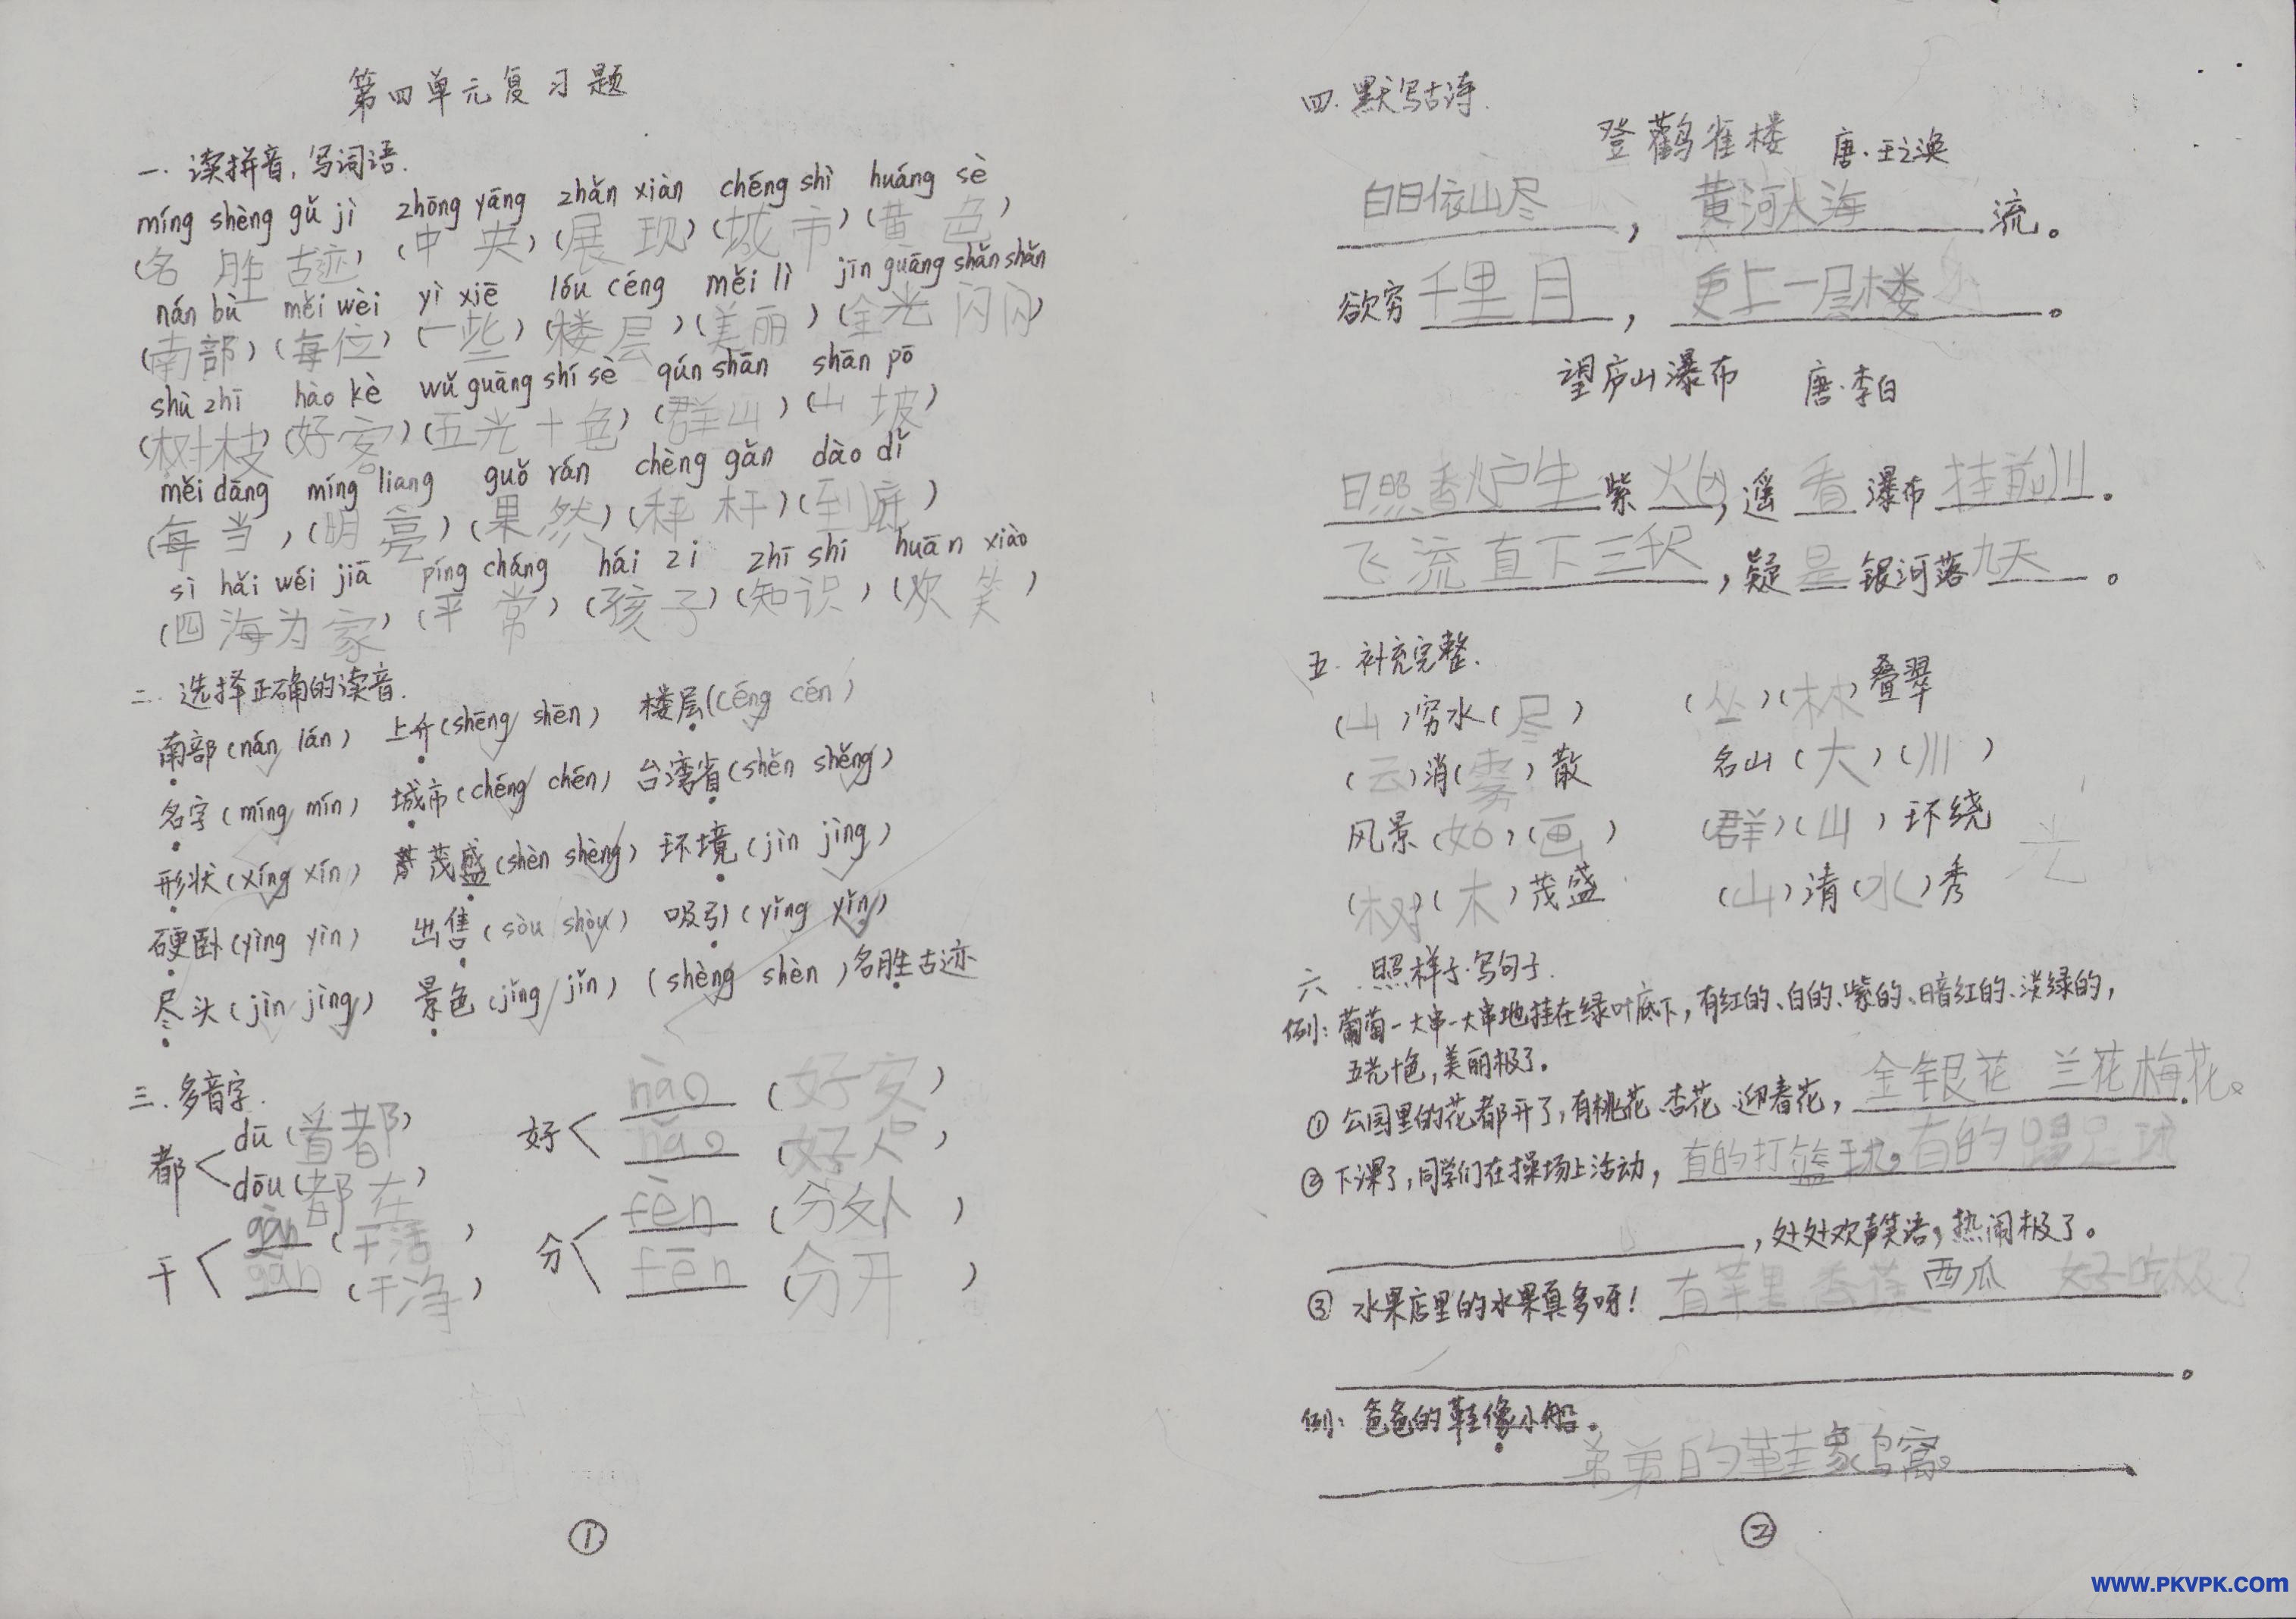 第四单元复习题
一. 读拼音,写词语.
míng shèng gǔ jì zhōng yāng zhǎn xiàn chéng shì huáng sè
(名胜古迹) (中央) (展现) (城市) (黄色)
nán bù měi wèi yì xiē lóu céng měi lì jīn guāng shǎn shǎn
(南部) (每位) (一些) (楼层) (美丽) (金光闪闪)
shù zhī hào kè wǔ guāng shí sè qún shān shān pō
(树枝) (好客) (五光十色) (群山) (山坡)
měi dāng míng liang guǒ rán chèng gǎn dào dǐ
(每当) (明亮) (果然) (秤杆) (到底)
sì hǎi wéi jiā píng cháng hái zi zhī shi huān xiào
(四海为家) (平常) (孩子) (知识) (欢笑)
二. 选择正确的读音.
南部(nán lán) 上升(shēng shēn) 楼层(céng cén)
名字(míng mín) 城市(chéng chén) 台湾省(shěn shěng)
形状(xíng xín) 茂盛(shèn shèng) 环境(jìn jìng)
硬卧(yìng yìn) 出售(sòu shòu) 吸引(yǐng yǐn)
尽头(jìn jìng) 景色(jǐng jǐn) (shèng shèn)名胜古迹
三.多音字.
都 dū (首都)
dōu (都在)
好 hào (好客)
hǎo (好人)
干 gàn (干活)
gān (干净)
分 fèn (分外)
fēn (分开)
①
四. 默写古诗.
登鹳雀楼 唐.王之涣
白日依山尽,黄河入海流。
欲穷千里目,更上一层楼。
望庐山瀑布 唐.李白
日照香炉生紫火,遥看瀑布挂前川.
飞流直下三千尺,疑是银河落九天。
五. 补充完整.
(山)穷水(尽) (丛)(林)叠翠
(云)消(雾)散 名山(大)(川)
风景(如)(画) (群)(山)环绕
(树)(木)茂盛 (山)清(水)秀
光
六 .照样子.写句子.
例: 葡萄一大串一大串地挂在绿叶底下,有红的、白的、紫的、暗红的、淡绿的,
五光十色,美丽极了.
① 公园里的花都开了,有桃花 杏花 迎春花, 金银花 兰花 梅花。
② 下课了,同学们在操场上活动, 有的打篮球,有的踢足球
,处处欢声笑语,热闹极了。
③ 水果店里的水果真多呀! 有苹里 香蕉 西瓜 好吃极了
。
例: 爸爸的鞋像小船。
弟弟的鞋象鸟窝。
②
www.PKVPK.com